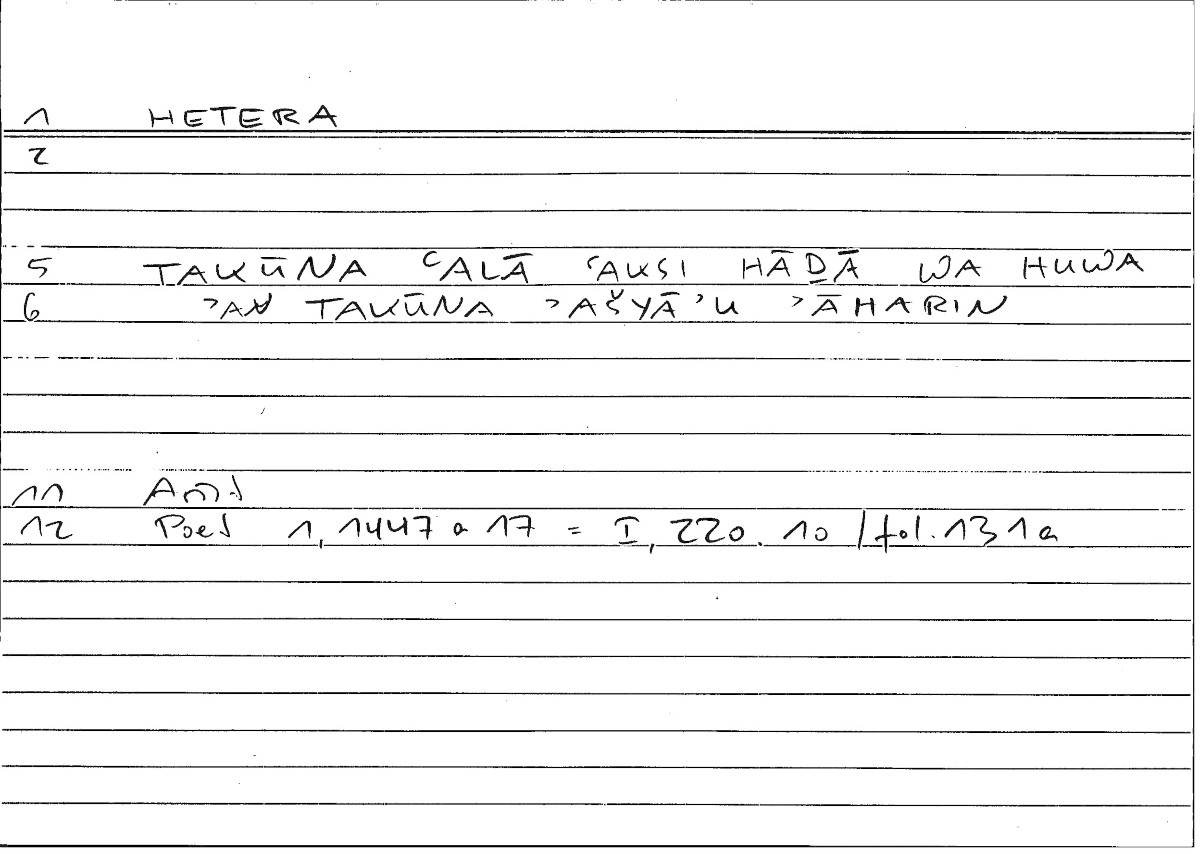 1 HETERA
2
5 TAKŪNA ʿALĀ ʿAKSI HĀḎĀ WA HUWA
6 ʾAN TAKŪNA ʾAŠYĀʾU ʾĀHARIN
11
12 Poet 1,1447 a 17 = I, 220. 10 / fol. 131a